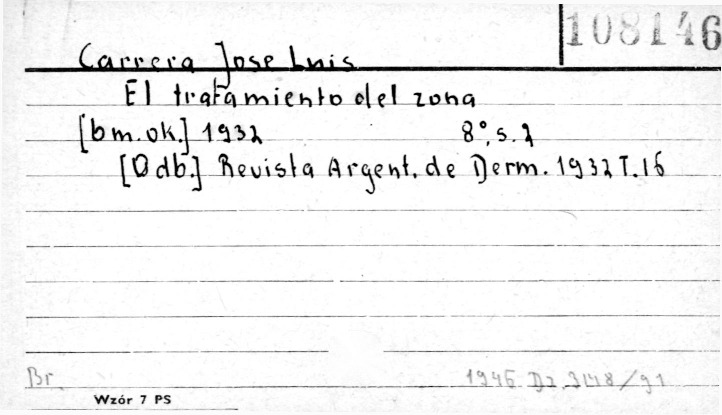 108146
Carrera Jose Luis
El tratamiento del zona
[bm. ok.] 1932 8°, s. 2
[Odb.] Revista Argent. de Derm. 1932 T. 16
Br. 1946 Dz. 3148/91
Wzór 7 PS